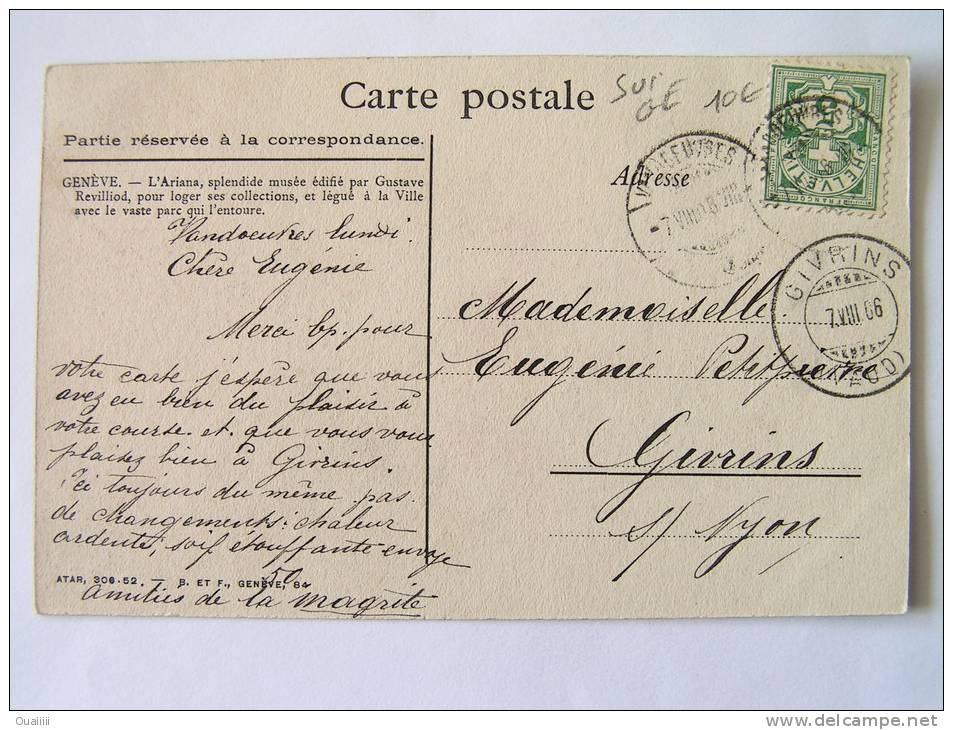 Carte postale
Suisse
GE 10€
Partie réservée à la correspondance.
Adresse
GENÈVE. — L'Ariana, splendide musée édifié par Gustave
Revilliod, pour loger ses collections, et légué à la Ville
avec le vaste parc qui l'entoure.
Vandoeuvres lundi.
Chère Eugénie
Merci bp. pour
votre carte j'espère que vous
avez eu bien du plaisir à
votre course et que vous vous
plaisez bien à Givrins.
Ici toujours du même pas
de changements: chaleur
ardente, soif étouffante envoye
50
amitiés de la magrite
ATAR, 306-52. — B. ET F., GENÈVE, 84
Mademoiselle
Eugénie Petitpierre
Givrins
s/ Nyon
HELVETIA
FRANCO
5
VANDOEUVRES
7.VIII.06
GIVRINS
7.VIII.06
(VAUD)
Ouaiiii
www.delcampe.net